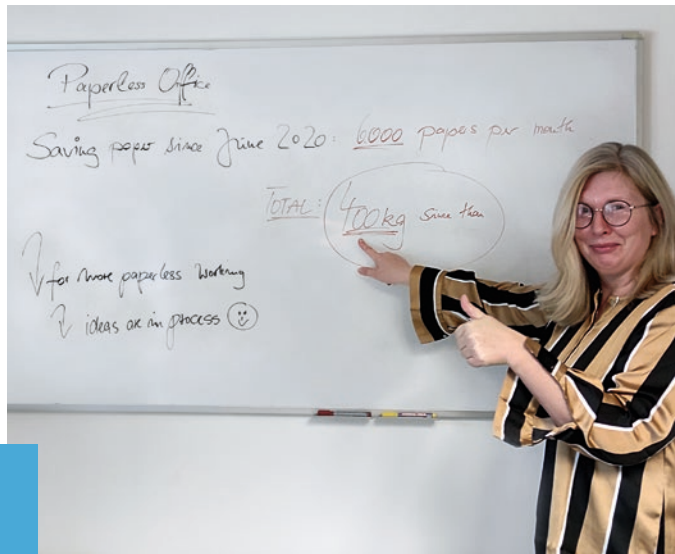 Paperless Office
Saving paper since June 2020: 6.000 papes per month
TOTAL: 400kg since than
for more paperless working
ideas are in process